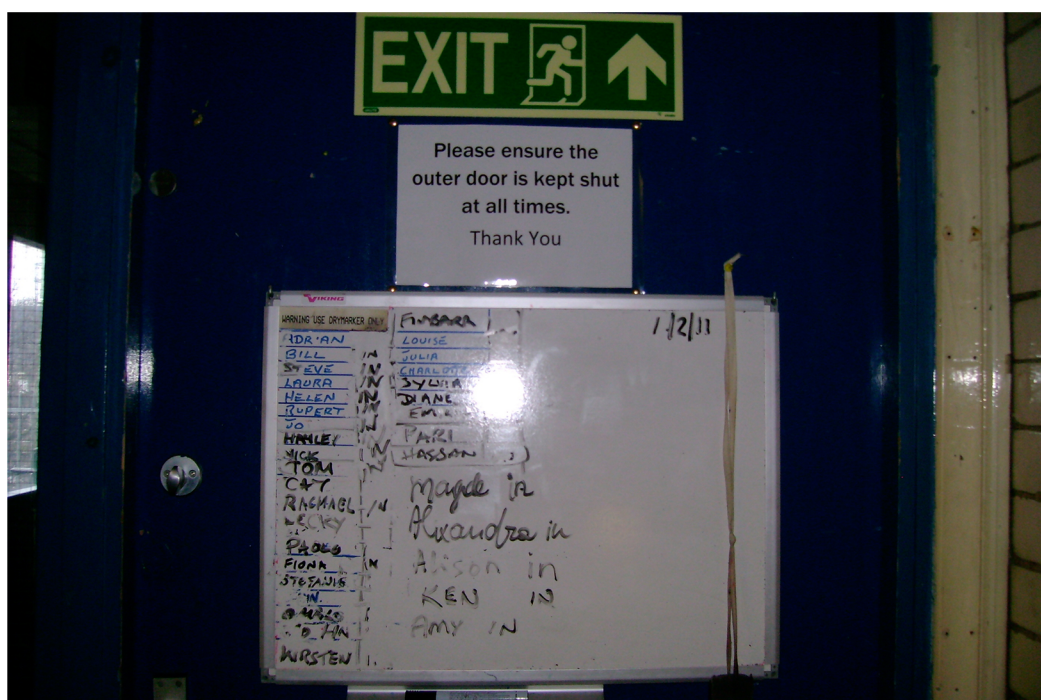 EXIT
Please ensure the
outer door is kept shut
at all times.
Thank You
VIKING
WARNING USE DRYMARKER ONLY
BILL IN
STEVE IN
LAURA IN
HELEN IN
RUPERT IN
JO IN
HAYLEY
NICK IN
TOM IN
CAT
RACHAEL IN
BECKY
PAOLO
FIONA IN
STEFANIE
IN
JOHN
KIRSTEN
FINBARR
LOUISE
JULIA
CHARLOTTE
SYLVIA
DIANE
PARI
HASSAN
Magde in
Alxandra in
Alison in
KEN IN
AMY IN
1/2/11